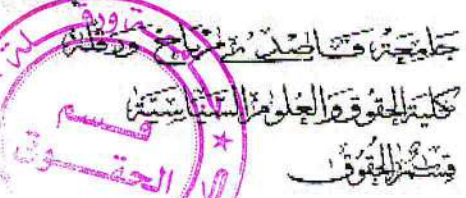 جامعة قاصدي مرباح ورقلة
كلية الحقوق والعلوم السياسية
قسم الحقوق
ورقلة
قسم
الحقوق